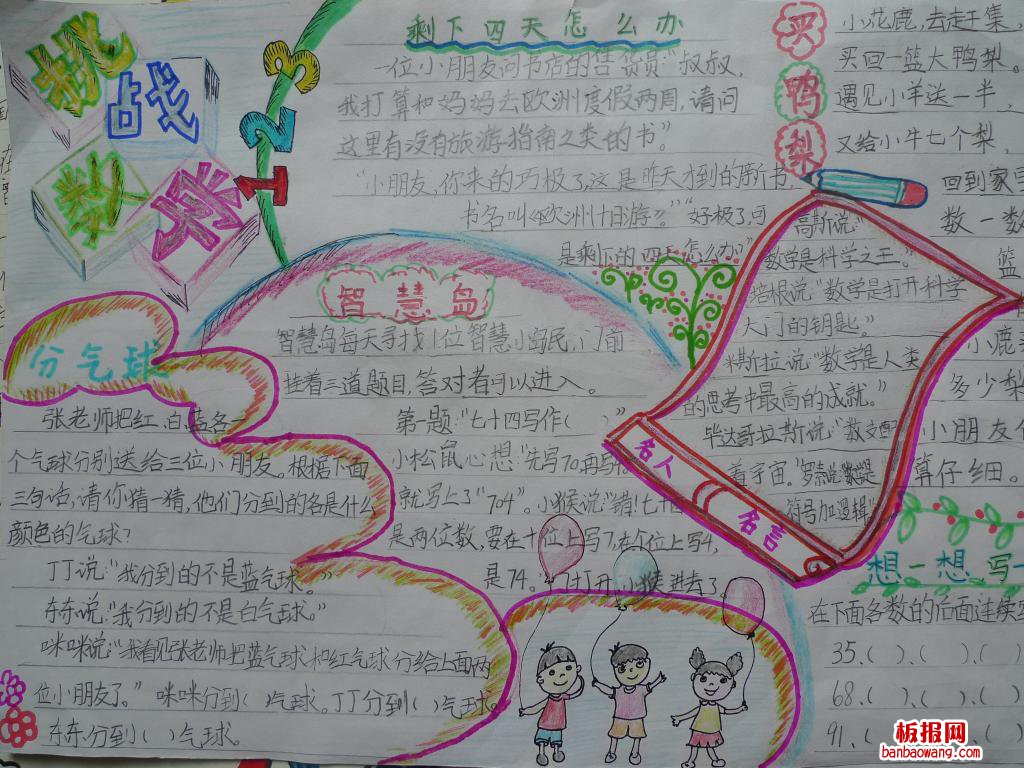 挑战数学
123
剩下四天怎么办
一位小朋友问书店的售货员“叔叔,
我打算和妈妈去欧洲度假两周,请问
这里有没有旅游指南之类的书”。
“小朋友,你来的巧极了,这是昨天才到的新书,
书名叫《欧洲十日游?”“好极了,可
是剩下的四天怎么办”
买鸭梨
小花鹿,去赶集,
买回一篮大鸭梨。
遇见小羊送一半,
又给小牛七个梨,
回到家里
数一数
篮
小鹿
多少梨
小朋友
算仔细。
智慧岛
智慧岛每天寻找1位智慧小岛民,门前
挂着三道题目,答对者可以进入。
第一题:“七十四写作( )”
小松鼠心想“先写70,再写
就写上了“704”。小猴说“错!七十四
是两位数,要在十位上写7,在个位上写4,
是74。”门打开,小猴进去了
分气球
张老师把红、白、蓝各
个气球分别送给三位小朋友。根据下面
三句话,请你猜一猜,他们分到的各是什么
颜色的气球?
丁丁说:“我分到的不是蓝气球。”
东东说:“我分到的不是白气球。”
咪咪说:“我看见张老师把蓝气球和红气球分给上面两
位小朋友了。” 咪咪分到( )气球。丁丁分到( )气球。
东东分到( )气球。
名人名言
高斯说“
数学是科学之王。”
培根说“数学是打开科学
大门的钥匙。”
米斯拉说“数学是人类
的思考中最高的成就。”
毕达哥拉斯说:“数支配
着宇宙。”罗素说“数学是
符号加逻辑”
想一想 写一
在下面各数的后面连续写
35.( )、( )、( )、(
68.( )、( )、( )
91.( )、( )、( )
板报网
banbaowang.com